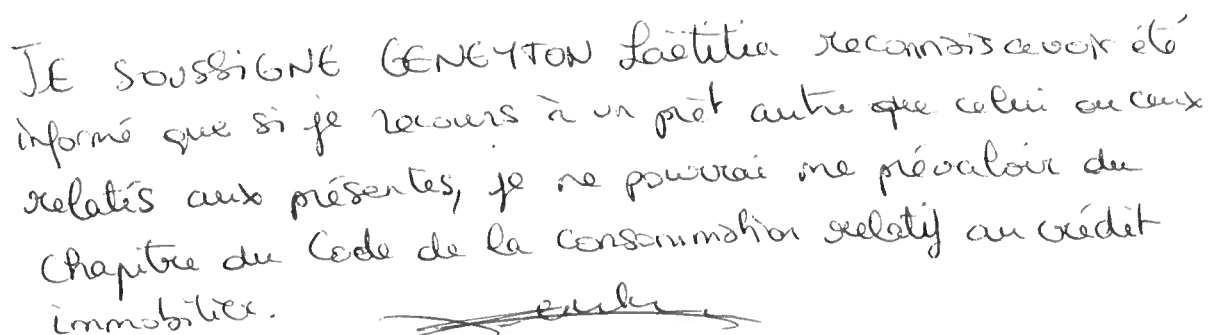 JE SOUSSIGNÉ GENEYTON Laëtitia reconnais avoir été
informé que si je recours à un prêt autre que celui ou ceux
relatés aux présentes, je ne pourrai me prévaloir du
chapitre du Code de la consommation relatif au crédit
immobilier.